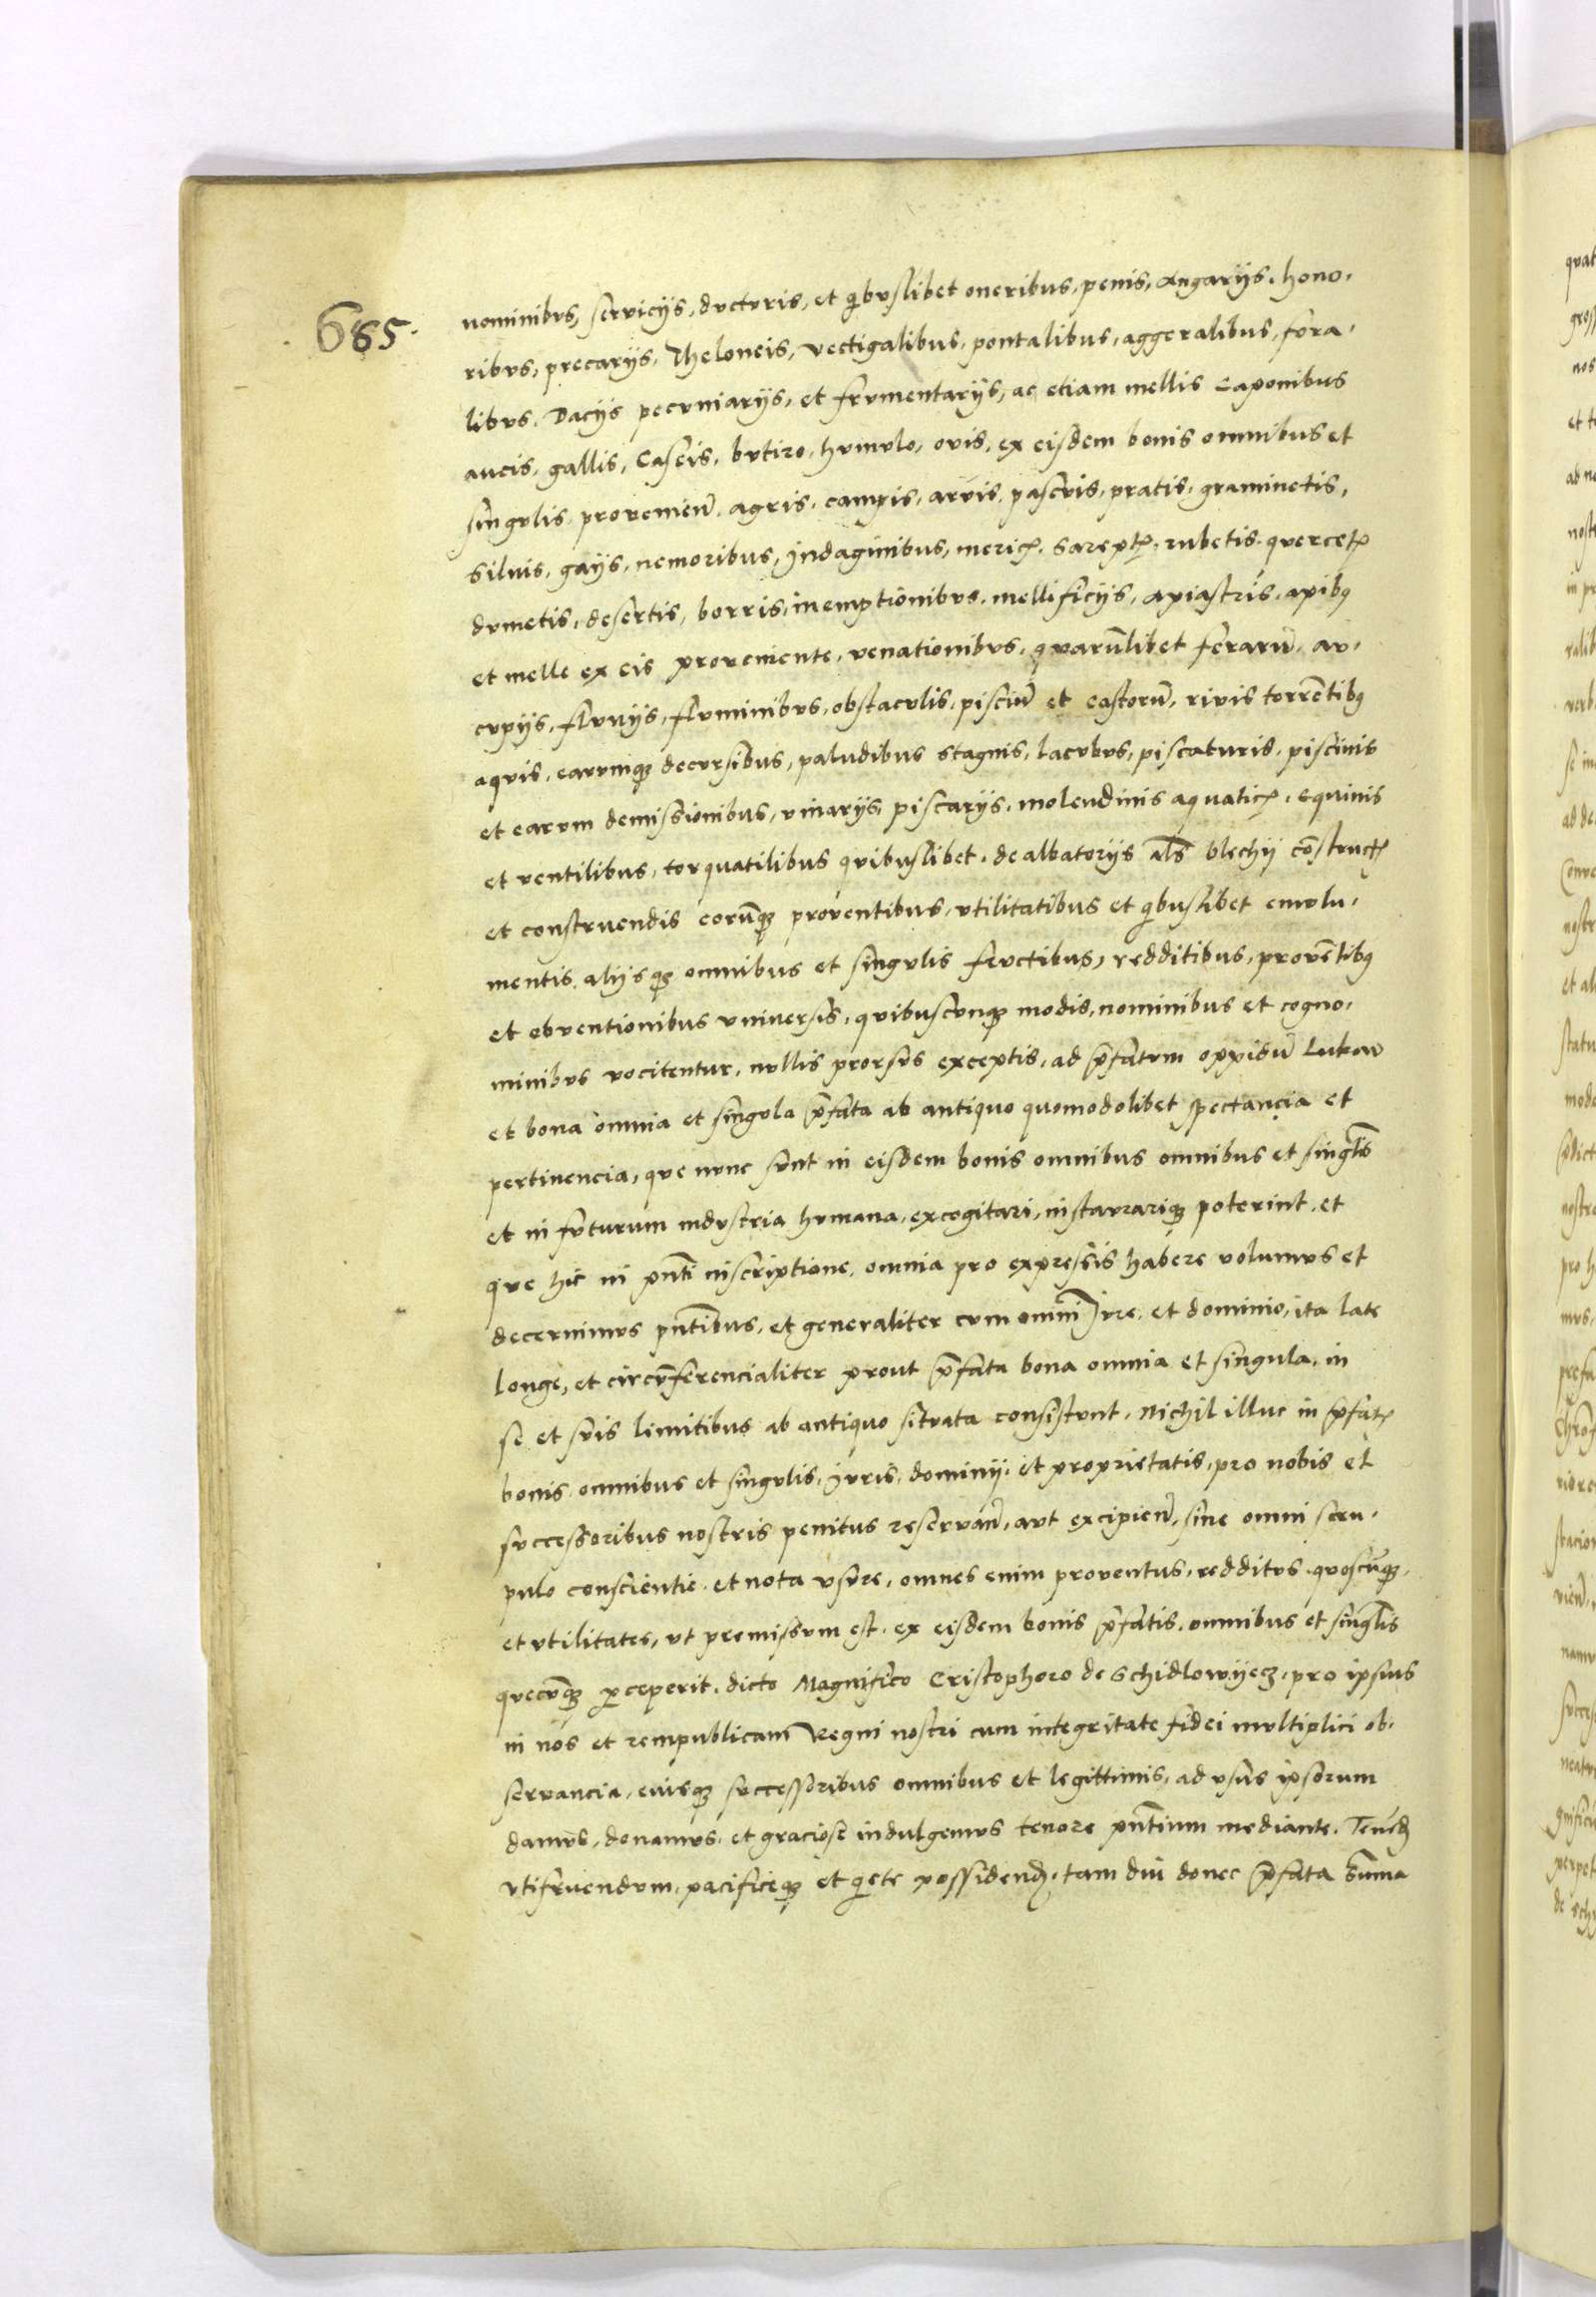 685.
nominibus, serviciis, ducturis, et quibuslibet oneribus, penis, angariis, hono-
ribus, precariis, Theloneis, vectigalibus, pontalibus, aggeralibus, fora-
libus. Daciis pecuniariis, et frumentariis, ac etiam mellis Caponibus
aucis, gallis, Caseis, butiro, humulo, ovis, ex eisdem bonis omnibus et
singulis provenieñ. agris, campis, arvis, pascuis, pratis, graminetis,
silvis, gaiis, nemoribus, indaginibus, mericꝭ. sareptꝭ. rubetis. quercetꝭ
dumetis, desertis, borris, inemptionibus, mellificiis, apiastris, apibꝰ
et melle ex eis proveniente, venationibus, quarūlibet ferarū, au-
cupiis, fluviis, fluminibus, obstaculis, pisciū et castorū, rivis torrētibꝰ
aquis, earumqꝫ decursibus, paludibus stagnis, lacubus, piscaturis, piscinis
et earum demissionibus, vinariis, piscariis, molendinis aquaticꝭ. equinis
et ventilibus, torquatilibus quibuslibet. dealbatoriis als̄ blechy cōstructꝭ
et construendis eorūqꝫ proventibus, utilitatibus et quibuslibet emolu-
mentis, aliisqꝫ omnibus et singulis fructibus, redditibus, provētibꝰ
et obventionibus universis, quibuscunqꝫ modis, nominibus et cogno-
minibus vocitentur, nullis prorsus exceptis, ad p̄fatum oppidū Lukow
et bona omnia et singula p̄fata ab antiquo quomodolibet spectancia et
pertinencia, que nunc sunt in eisdem bonis omnibus omnibus et singlīs
et in futurum industria humana, excogitari, instaurariqꝫ poterint, et
que hic in pn̄ti inscriptione, omnia pro expressis habere volumus et
decernimus pn̄tibus, et generaliter cum omni Jure, et dominio, ita late
longe, et circūferencialiter prout p̄fata bona omnia et singula, in
se et suis limitibus ab antiquo situata consistunt. Nichil illuc in p̄fatꝭ
bonis omnibus et singulis, juris, dominii, et proprietatis, pro nobis et
successoribus nostris penitus reservañ, aut excipieñ, sine omni scru-
pulo conscientie, et nota usure, omnes enim proventus, redditus, quoscūqꝫ
et utilitates, ut premissum est, ex eisdem bonis p̄fatis, omnibus et singlīs
quecūqꝫ perceperit, dicto Magnifico Cristophoro de Schidlowyecz, pro ipsius
in nos et rempublicam Regni nostri cum integritate fidei multiplici ob-
servancia, eiusqꝫ successoribus omnibus et legittimis, ad usus ipsorum
damus, donamus, et graciose indulgemus tenore pn̄tium mediante. Teneñd
utifruendum, pacificeqꝫ et quiete possidend, tam diu donec p̄fata summa